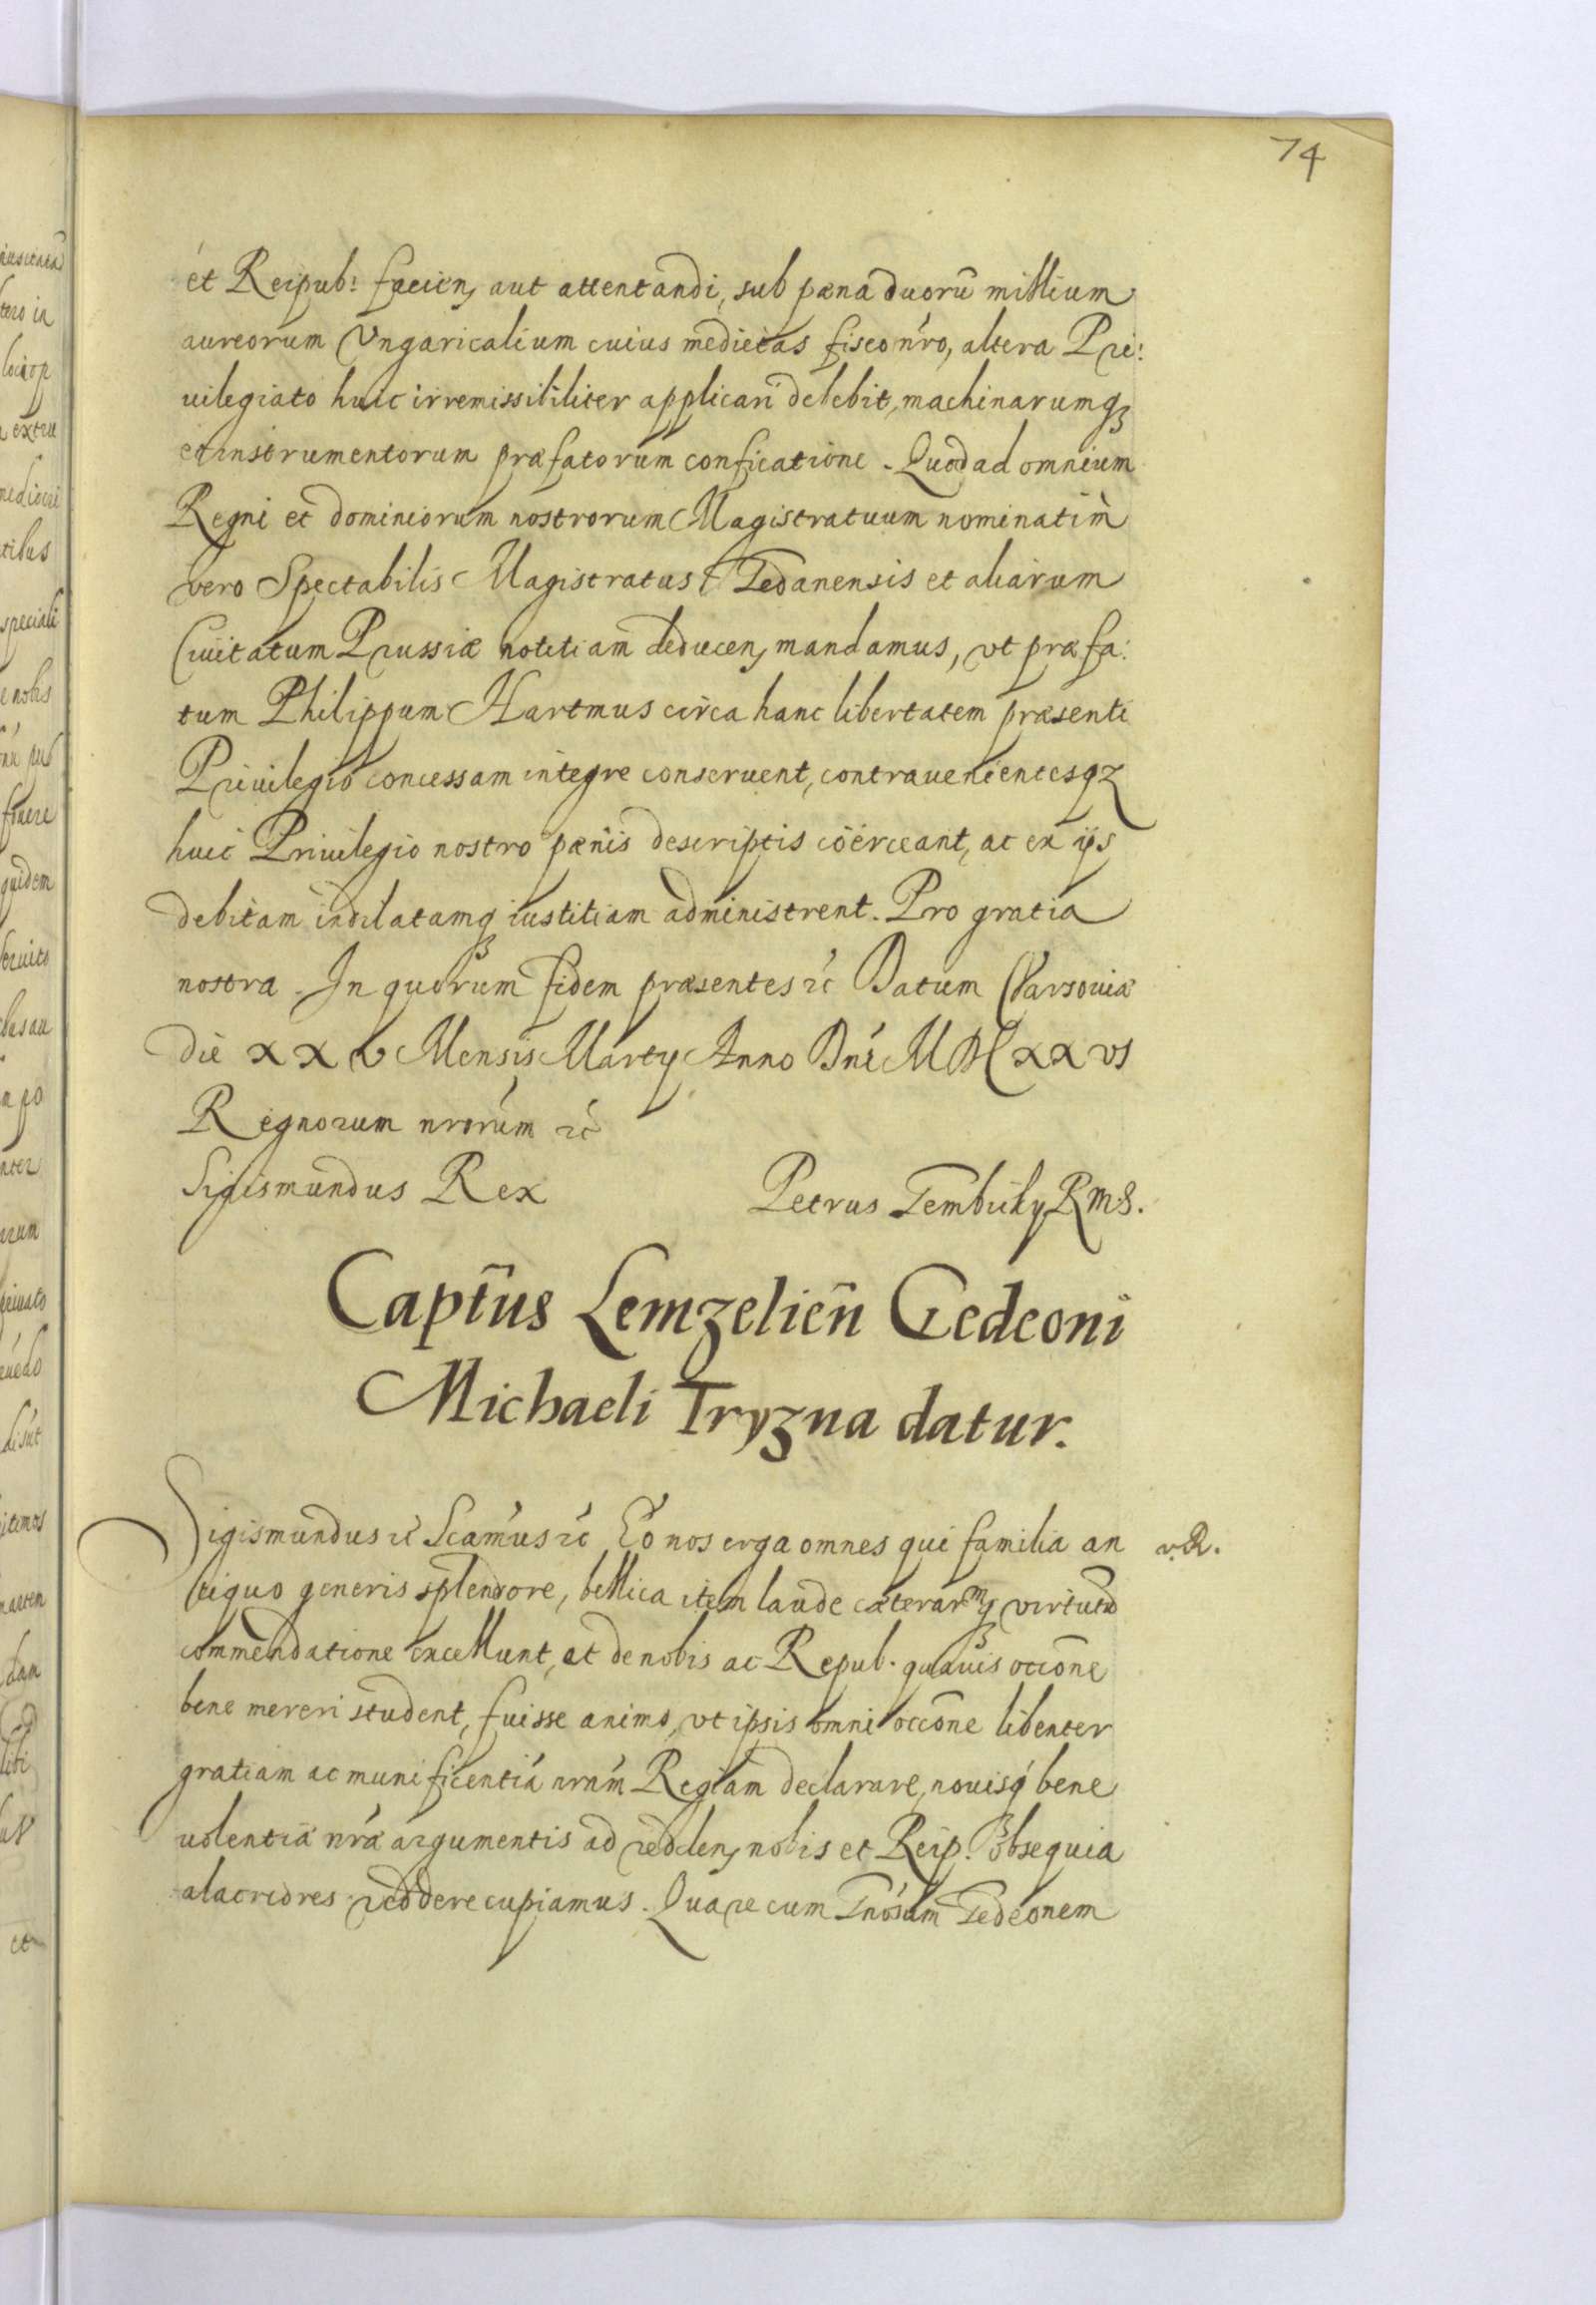 74
et Reipub: facien, aut attentandi, sub pæna duorū millium
aureorum Vngaricalium cuius medietas fisco nro, altera Pri:
uilegiato huic irremissibiliter applicari debebit, machinarumq3
et instrumentorum præfatorum conficatione. Quod ad omnium
Regni et dominiorum nostrorum Magistratuum nominatim
vero Spectabilis Magistratus Gedanensis et aliarum
Ciuitatum Prussiæ notitiam deducen, mandamus, vt præfa:
tum Philippum Hartmus circa hanc libertatem præsenti
Priuilegio concessam integre conseruent, contrauenientesq3
huic Priuilegio nostro pænis descriptis coerceant, ac ex ijs
debitam indilatamq3 iustitiam administrent. Pro gratia
nostra. In quorum fidem præsentes rc Datum Varsouiæ
die XXV Mensis Martij Anno Dni MDCXXVI
Regnorum nrorum rc
Sigismundus Rex Petrus Gembicky RMS.
Captūs Lemzelień Gedeoni
Michaeli Tryzna datur.
Sigismundus rc Scamus rc Eo nos erga omnes qui familia an v.R.
tiquo generis splendore, bellica item laude cæterarmq3 virtutū
commendatione excellunt, et de nobis ac Repub. quauis occōne
bene mereri student, fuisse animo, vt ipsis omni occōne libenter
gratiam ac munificentiá nrám Regiam declarare, nouisq3 bene
uolentiæ nræ argumentis ad redden, nobis et Reip. obsequia
alacriores reddere cupiamus. Quare cum Gnosum Gedeonem